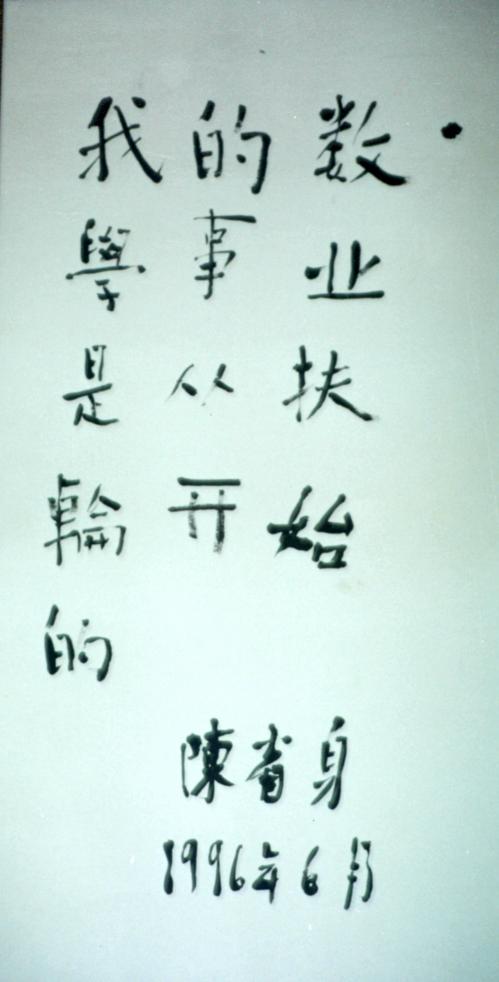 我的数
學事业
是从扶
輪开始
的
陳省身
1996年6月